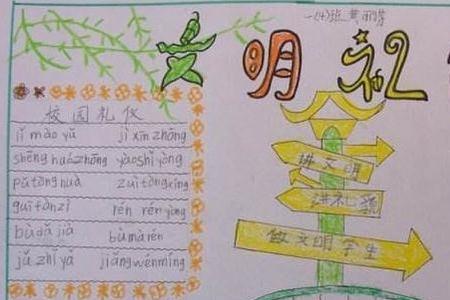 一(4)班
文明礼
校园礼仪
lǐ mào yǔ jì xīn zhōng
shēng huó zhōng yào shǐ yòng
pǔ tōng huà zuì tōng xíng
rén rén
bù dǎ jià bù mà rén
jǔ zhǐ yǎ jiǎng wén míng
讲文明
讲礼貌
做文明学生